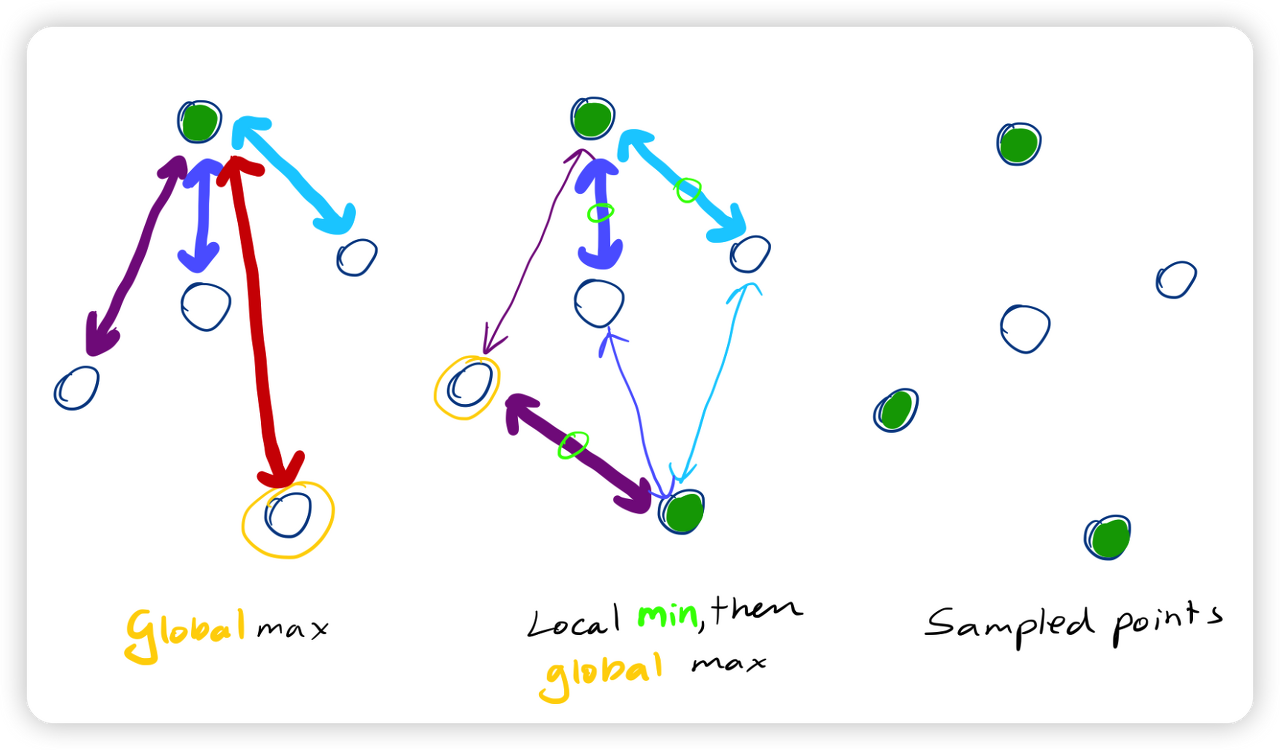 Global max
Local min, then
global max
Sampled points